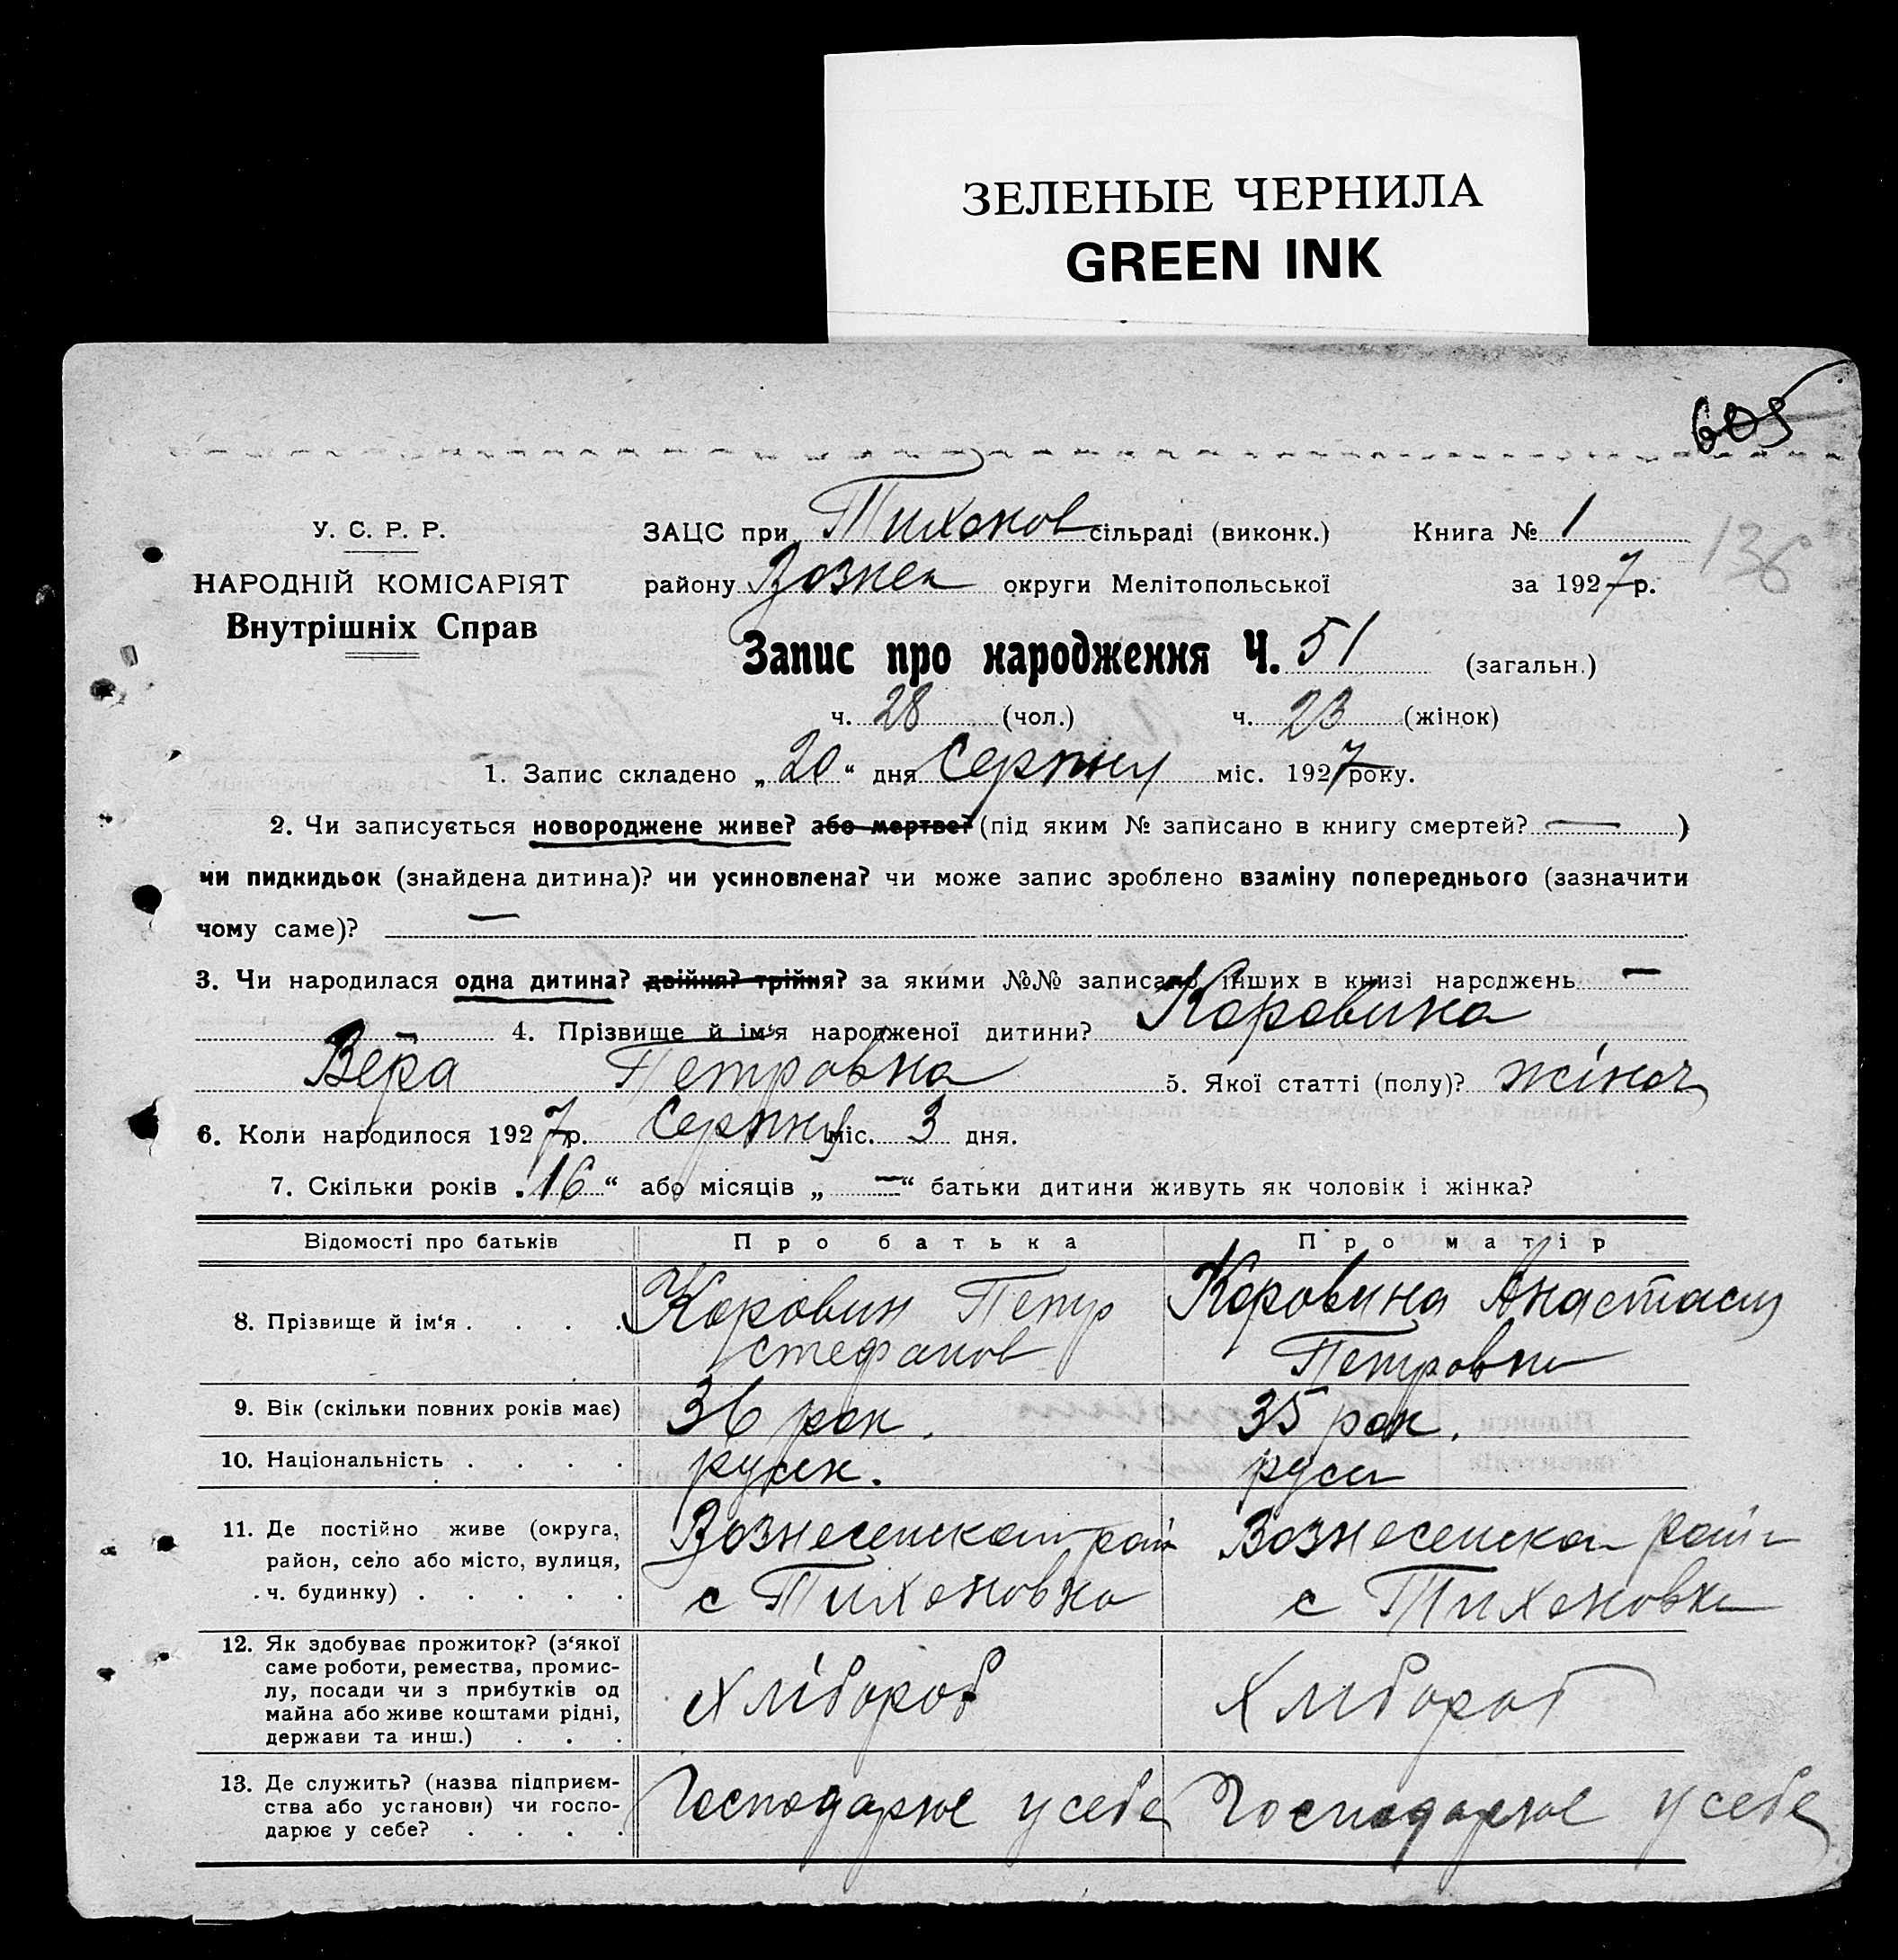 ЗЕЛЕНЫЕ ЧЕРНИЛА
GREEN INK
605
У. С. Р. Р.
НАРОДНІЙ КОМІСАРІЯТ
Внутрішніх Справ
ЗАЦС при Тихонов сільраді (виконк.) Книга № 1
136
району Вознес округи Мелітопольської за 1927 р.
Запис про народження Ч. 51 (загальн.)
ч. 28 (чол.) ч. 23 (жінок)
1. Запис складено „20“ дня Серпня міс. 1927 року.
2. Чи записується новороджене живе? або мертве? (під яким № записано в книгу смертей? — )
чи пидкидьок (знайдена дитина)? чи усиновлена? чи може запис зроблено взаміну попереднього (зазначити
чому саме)? —
3. Чи народилася одна дитина? двійня? трійня? за якими №№ записано інших в книзі народжень —
4. Прізвище й ім‘я народженої дитини? Коровина
Вера Петровна 5. Якої статті (полу)? жіноч
6. Коли народилося 1927 р. Серпня міс. 3 дня.
7. Скільки років „16“ або місяців „ — “ батьки дитини живуть як чоловік і жінка?
Відомості про батьків Про батька Про матір
8. Прізвище й ім‘я . . . . Коровин Петр Коровина Анастасия
Стефанов Петровна
9. Вік (скільки повних років має) 36 рок. 35 рок.
10. Національність . . . . руск. руск
11. Де постійно живе (округа, Вознесенская рай Вознесенская рай
район, село або місто, вулиця,
ч. будинку) . . . . . с Тихоновка с Тихоновка
12. Як здобуває прожиток? (з‘якої
саме роботи, ремества, промис-
лу, посади чи з прибутків од Хлібороб Хлібороб
майна або живе коштами рідні,
держави та инш.) . . .
13. Де служить? (назва підприєм-
ства або установи) чи госпо- Господарює у себе Господарює у себе
дарює у себе? . . . .